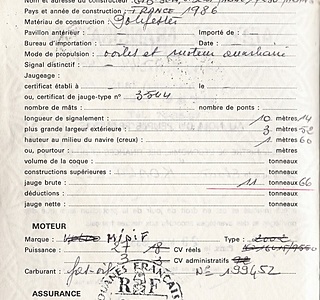 Pays et année de construction : FRANCE / 1986
Matériau de construction : Polyester
Pavillon antérieur : Importé de :
Bureau d'importation : Date :
Mode de propulsion : voiles et moteur auxiliaire
Signal distinctif :
Jaugeage :
certificat établi à le
ou, certificat de jauge-type n° 3544
nombre de mâts : nombre de ponts :
longueur de signalement : 10 mètres 14
plus grande largeur extérieure : 3 mètres 52
hauteur au milieu du navire (creux) : 1 mètres 60
ou, pourtour : mètres
volume de la coque : tonneaux
constructions supérieures : tonneaux
jauge brute : 11 tonneaux 66
déductions : tonneaux
jauge nette : tonneaux
MOTEUR
Marque : MIDIF Type :
Puissance : 37 18 CV réels
3 2 CV administratifs
Carburant : gas-oil N° 199452
DOUANES FRANÇAISES
RF
ASSURANCE